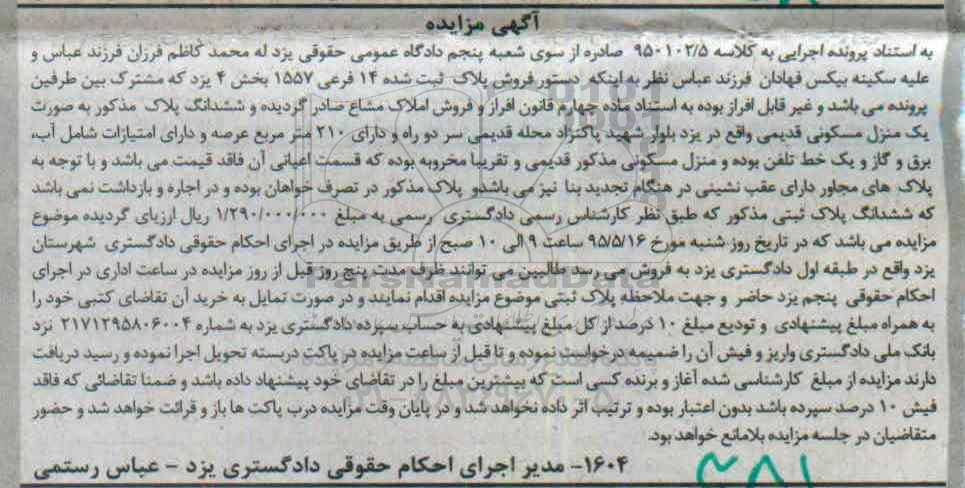 آگهی مزایده
به استناد پرونده اجرایی به کلاسه ۹۵۰۱۰۲/۵ صادره از سوی شعبه پنجم دادگاه عمومی حقوقی یزد له محمد کاظم فرزان فرزند عباس و
علیه سکینه بیکس فهادان فرزند عباس نظر به اینکه دستور فروش پلاک ثبت شده ۱۴ فرعی ۱۵۵۷ بخش ۴ یزد که مشترک بین طرفین
پرونده می باشد و غیر قابل افراز بوده به استناد ماده چهارم قانون افراز و فروش املاک مشاع صادر گردیده و ششدانگ پلاک مذکور به صورت
یک منزل مسکونی قدیمی واقع در یزد بلوار شهید پاکنژاد محله قدیمی سر دو راه و دارای ۲۱۰ متر مربع عرصه و دارای امتیازات شامل آب،
برق و گاز و یک خط تلفن بوده و منزل مسکونی مذکور قدیمی و تقریبا مخروبه بوده که قسمت اعیانی آن فاقد قیمت می باشد و با توجه به
پلاک های مجاور دارای عقب نشینی در هنگام تجدید بنا نیز می باشدو پلاک مذکور در تصرف خواهان بوده و در اجاره و بازداشت نمی باشد
که ششدانگ پلاک ثبتی مذکور که طبق نظر کارشناس رسمی دادگستری رسمی به مبلغ ۱/۲۹۰/۰۰۰/۰۰۰ ریال ارزیابی گردیده موضوع
مزایده می باشد که در تاریخ روز شنبه مورخ ۹۵/۵/۱۶ ساعت ۹ الی ۱۰ صبح از طریق مزایده در اجرای احکام حقوقی دادگستری شهرستان
یزد واقع در طبقه اول دادگستری یزد به فروش می رسد طالبین می توانند ظرف مدت پنج روز قبل از روز مزایده در ساعت اداری در اجرای
احکام حقوقی پنجم یزد حاضر و جهت ملاحظه پلاک ثبتی موضوع مزایده اقدام نمایند و در صورت تمایل به خرید آن تقاضای کتبی خود را
به همراه مبلغ پیشنهادی و تودیع مبلغ ۱۰ درصد از کل مبلغ پیشنهادی به حساب سپرده دادگستری یزد به شماره ۲۱۷۱۲۹۵۸۰۶۰۰۴ نزد
بانک ملی دادگستری واریز و فیش آن را ضمیمه درخواست نموده و تا قبل از ساعت مزایده در پاکت دربسته تحویل اجرا نموده و رسید دریافت
دارند مزایده از مبلغ کارشناسی شده آغاز و برنده کسی است که بیشترین مبلغ را در تقاضای خود پیشنهاد داده باشد و ضمنا تقاضائی که فاقد
فیش ۱۰ درصد سپرده باشد بدون اعتبار بوده و ترتیب اثر داده نخواهد شد و در پایان وقت مزایده درب پاکت ها باز و قرائت خواهد شد و حضور
متقاضیان در جلسه مزایده بلامانع خواهد بود.
۱۶۰۴- مدیر اجرای احکام حقوقی دادگستری یزد - عباس رستمی
ParsNamadData